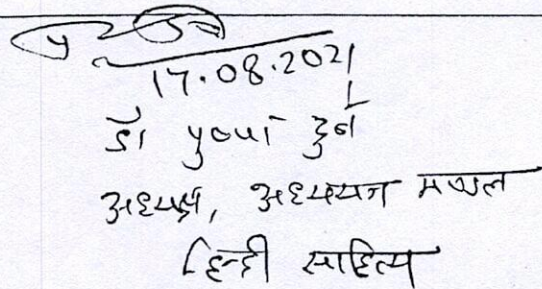 17.08.2021
डॉ पुष्पा दुबे
अध्यक्ष, अध्ययन मण्डल
हिन्दी साहित्य